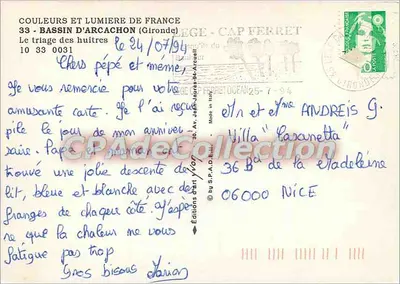 COULEURS ET LUMIERE DE FRANCE
33 - BASSIN D'ARCACHON (Gironde)
Le triage des huîtres
10 33 0031
le 24/07/94
Chers pépé et mémé,
Je vous remercie pour votre
amusante carte. Je l'ai reçu
pile le jour de mon anniver
saire. Papa et maman ont
trouvé une jolie descente de
lit, bleue et blanche avec des
franges de chaque côté. J'espè
re que la chaleur ne vous
fatigue pas trop
Gros bisous Marion
Editions d'art YVON
© by S.P.A.D.E.M.
Made in
LEGE - CAP FERRET
25-7-94
Mr et Mme ANDREIS G.
Villa "Casanetta"
36 Bd de la Madeleine
06000 NICE
CPACollection